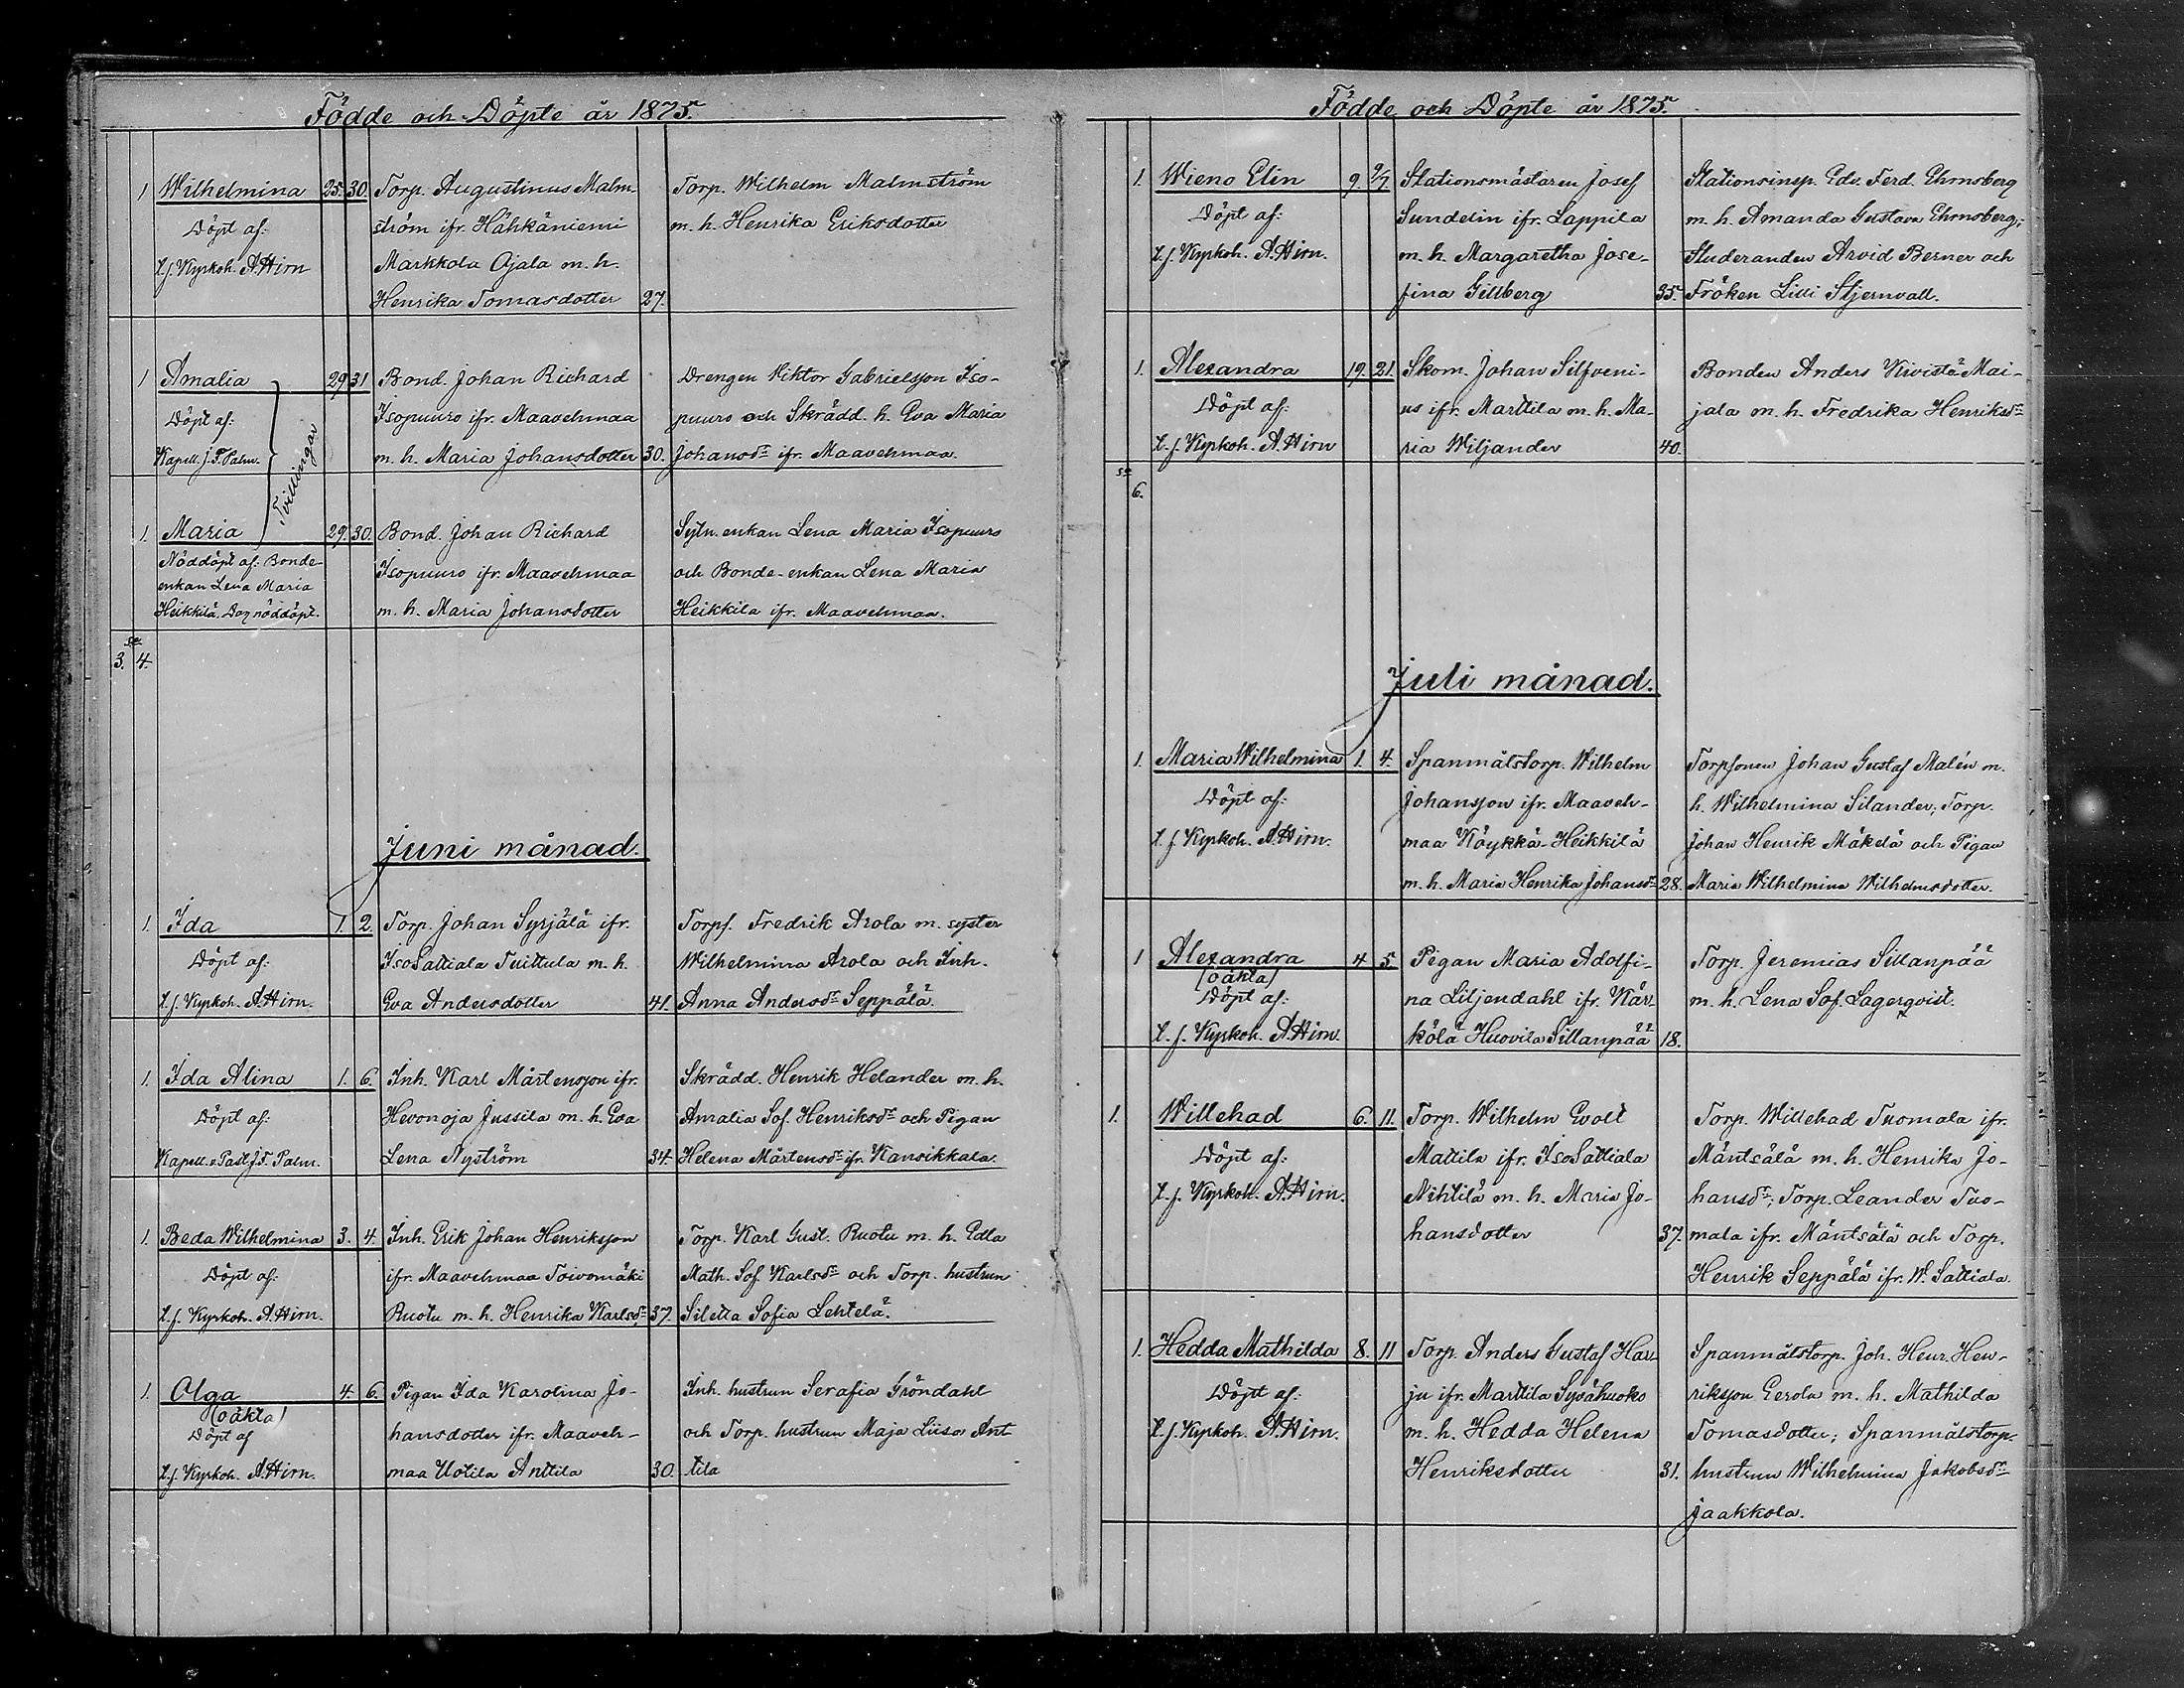 Födde och Döpte år 1875.
1 Wilhelmina 25. 30. Torp. Augustinus Malm- Torp. Wilhelm Malmström
Döpt af: ström ifr. Hähkäniemi m. h. Henrika Eriksdotter
t.f. Kyrkoh. A. Hirn Markkola Ojala m. h.
Henrika Tomasdotter 27.
1 Amalia 29 31 Bond. Johan Richard Drengen Viktor Gabrielsson Iso-
Döpt af: Isopuuro ifr. Maavehmaa puuro och Skrädd. h. Eva Maria
Kapell. J. F. Palm. m. h. Maria Johansdotter 30. Johansdr ifr. Maavehmaa.
Tvillingar
1. Maria 29. 30. Bond. Johan Richard Sytn. enkan Lena Maria Isopuuro
Nöddöpt af: Bonde- Isopuuro ifr. Maavehmaa och Bonde-enkan Lena Maria
enkan Lena Maria m. h. Maria Johansdotter Heikkilä ifr. Maavehmaa.
Heikkilä. Dag nöddöpt.
Sa
3. 4.
Juni månad.
1. Ida 1. 2. Torp. Johan Syrjälä ifr. Torpf. Fredrik Arola m. syster
Döpt af: IsoSattiala Tuittula m. h. Wilhelmina Arola och Inh.
t.f. Kyrkoh. A. Hirn. Eva Andersdotter 41. Anna Andersdr Seppälä.
1. Ida Alina 1. 6. Inh. Karl Mårtensson ifr. Skrädd. Henrik Helander m. h.
Döpt af: Hevonoja Jussila m. h. Eva Amalia Sof. Henriksdr och Pigan
Kapell. v. Past. J. F. Palm. Lena Nyström 34. Helena Mårtensdr ifr. Kansikkala.
1. Beda Wilhelmina 3. 4. Inh. Erik Johan Henriksson Torp. Karl Gust. Ruotu m. h. Edla
Döpt af: ifr. Maavehmaa Toivomäki Math. Sof. Karlsdr och Torp. hustrun
t.f. Kyrkoh. A. Hirn. Ruotu m. h. Henrika Karlsdr 37. Siletta Sofia Lehtelä.
1. Olga 4. 6. Pigan Ida Karolina Jo- Inh. hustrun Serafia Gröndahl
(oäkta)
Döpt af hansdotter ifr. Maaveh- och Torp. hustrun Maja Liisa Ant
t.f. Kyrkoh. A. Hirn. maa Uotila Anttila 30. tila
Födde och Döpte år 1875.
1. Wieno Elin 9. 9/7 Stationsmästaren Josef Stationsinsp. Edv. Ferd. Ehrnsberg
Döpt af: Sundelin ifr. Lappila m. h. Amanda Gustava Ehrnsberg;
t.f. Kyrkoh. A. Hirn. m. h. Margaretha Jose- Studeranden Arvid Berner och
fina Gillberg 35. Fröken Lilli Stjernvall.
1. Alexandra 19. 21. Skom. Johan Silfveni- Bonden Anders Kivistö Mai-
Döpt af: us ifr. Marttila m. h. Ma- jala m. h. Fredrika Henriksdr
t.f. Kyrkoh. A. Hirn ria Wiljander 40.
Sa
6.
Juli månad.
1. Maria Wilhelmina 1. 4. Spanmålstorp. Wilhelm Torpsonen Johan Gustaf Malén m.
Döpt af: Johansson ifr. Maaveh- h. Wilhelmina Silander; Torp.
t.f. Kyrkoh. A. Hirn. maa Köykkä-Heikkilä Johan Henrik Mäkelä och Pigan
m. h. Maria Henrika Johansdr 28. Maria Wilhelmina Wilhelmsdotter.
1 Alexandra 4 5. Pigan Maria Adolfi- Torp. Jeremias Sillanpää
(oäkta)
Döpt af: na Liljendahl ifr. Kär- m. h. Lena Sof. Lagerqvist.
t.f. Kyrkoh. A. Hirn. kölä Huovila Sillanpää 18.
1. Willehad 6. 11. Torp. Wilhelm Evalt Torp. Willehad Tuomala ifr.
Döpt af: Mattila ifr. IsoSattiala Mäntsälä m. h. Henrika Jo-
t.f. Kyrkoh. A. Hirn. Nihtilä m. h. Maria Jo- hansdr; Torp. Leander Tuo-
hansdotter 37. mala ifr. Mäntsälä och Torp.
Henrik Seppälä ifr. W. Sattiala.
1. Hedda Mathilda 8. 11 Torp. Anders Gustaf Har- Spanmålstorp. Joh. Henr. Hen-
Döpt af: ju ifr. Marttila Sysähuoko riksson Eerola m. h. Mathilda
t.f. Kyrkoh. A. Hirn. m. h. Hedda Helena Tomasdotter; Spanmålstorp.
Henriksdotter 31. hustrun Wilhelmina Jakobsdr
Jaakkola.